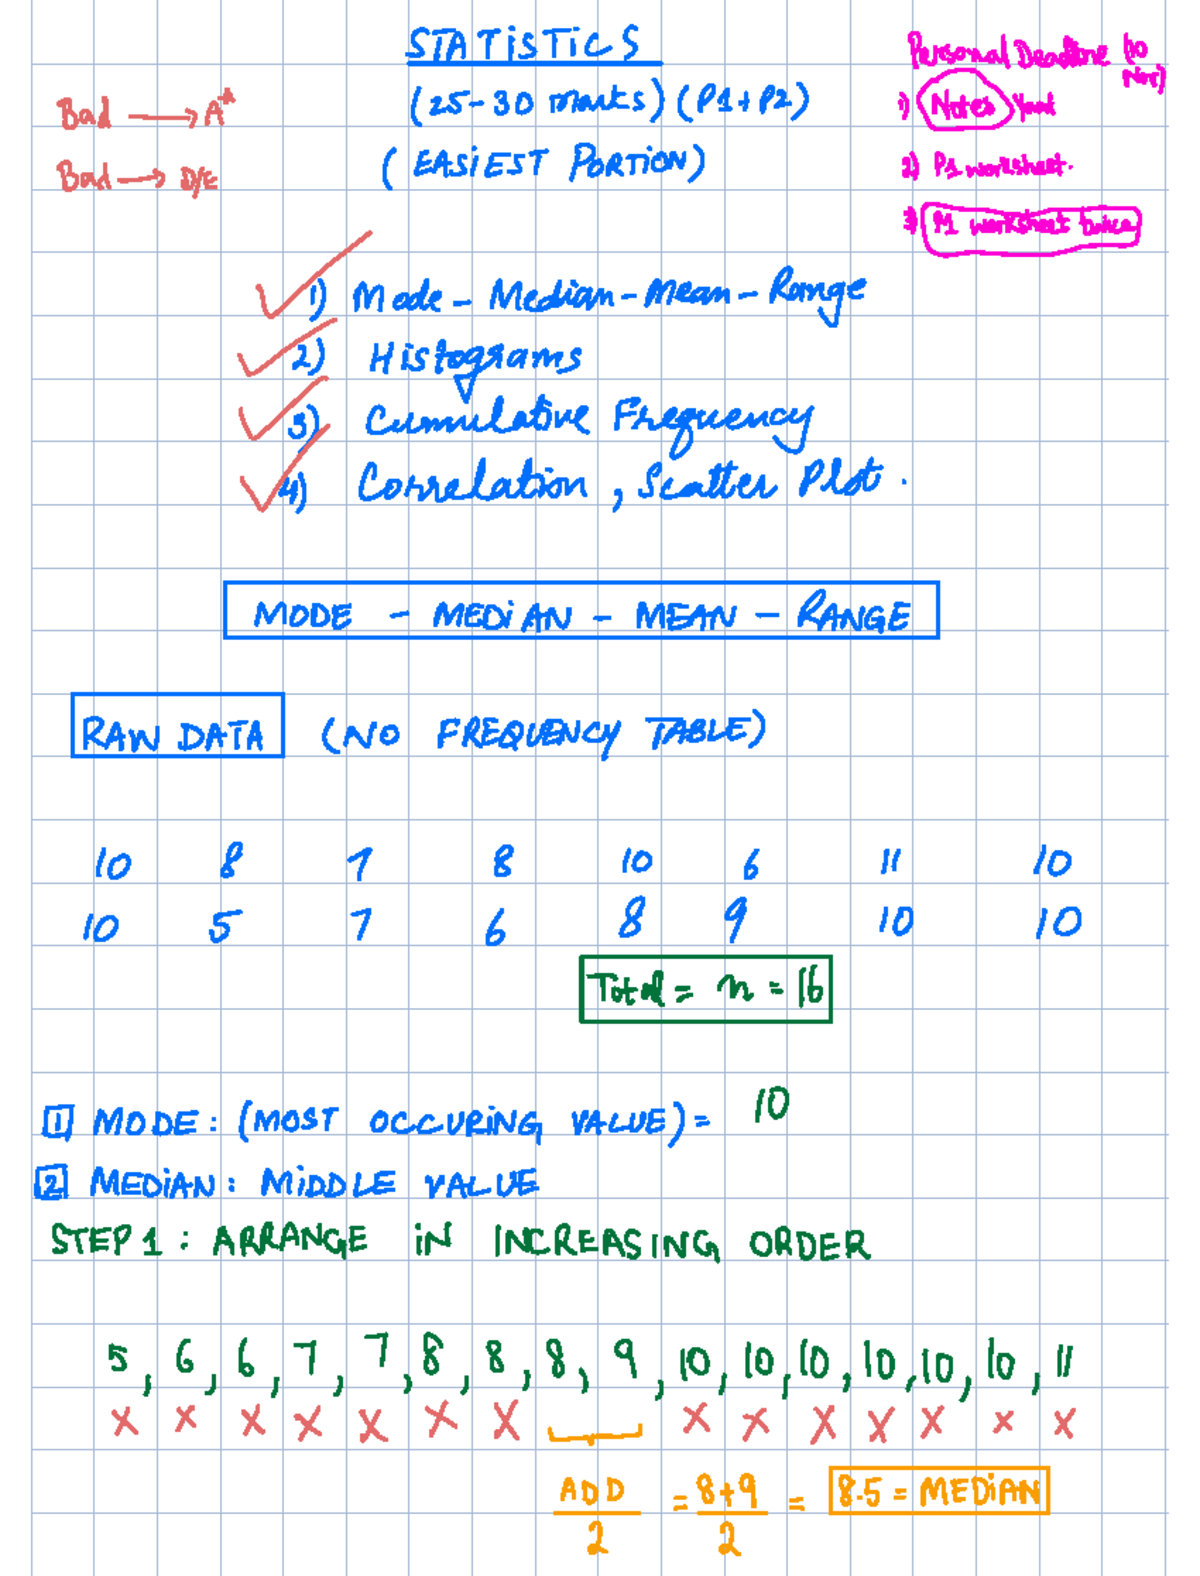 STATISTICS
(25-30 marks) (P1+P2)
(EASIEST PORTION)
Bad → A*
Bad → D/E
Personal Deadline (10 Nov)
1) Notes
2) P1 worksheet.
3) M1 worksheet twice
1) Mode - Median - Mean - Range
2) Histograms
3) Cumulative Frequency
4) Correlation, Scatter Plot.
MODE - MEDIAN - MEAN - RANGE
RAW DATA (NO FREQUENCY TABLE)
10 8 7 8 10 6 11 10
10 5 7 6 8 9 10 10
Total = n = 16
1 MODE: (MOST OCCURING VALUE) = 10
2 MEDIAN: MIDDLE VALUE
STEP 1: ARRANGE IN INCREASING ORDER
5, 6, 6, 7, 7, 8, 8, 8, 9, 10, 10, 10, 10, 10, 10, 11
x x x x x x x x x x x x x x
ADD/2 = 8+9/2 = 8.5 = MEDIAN